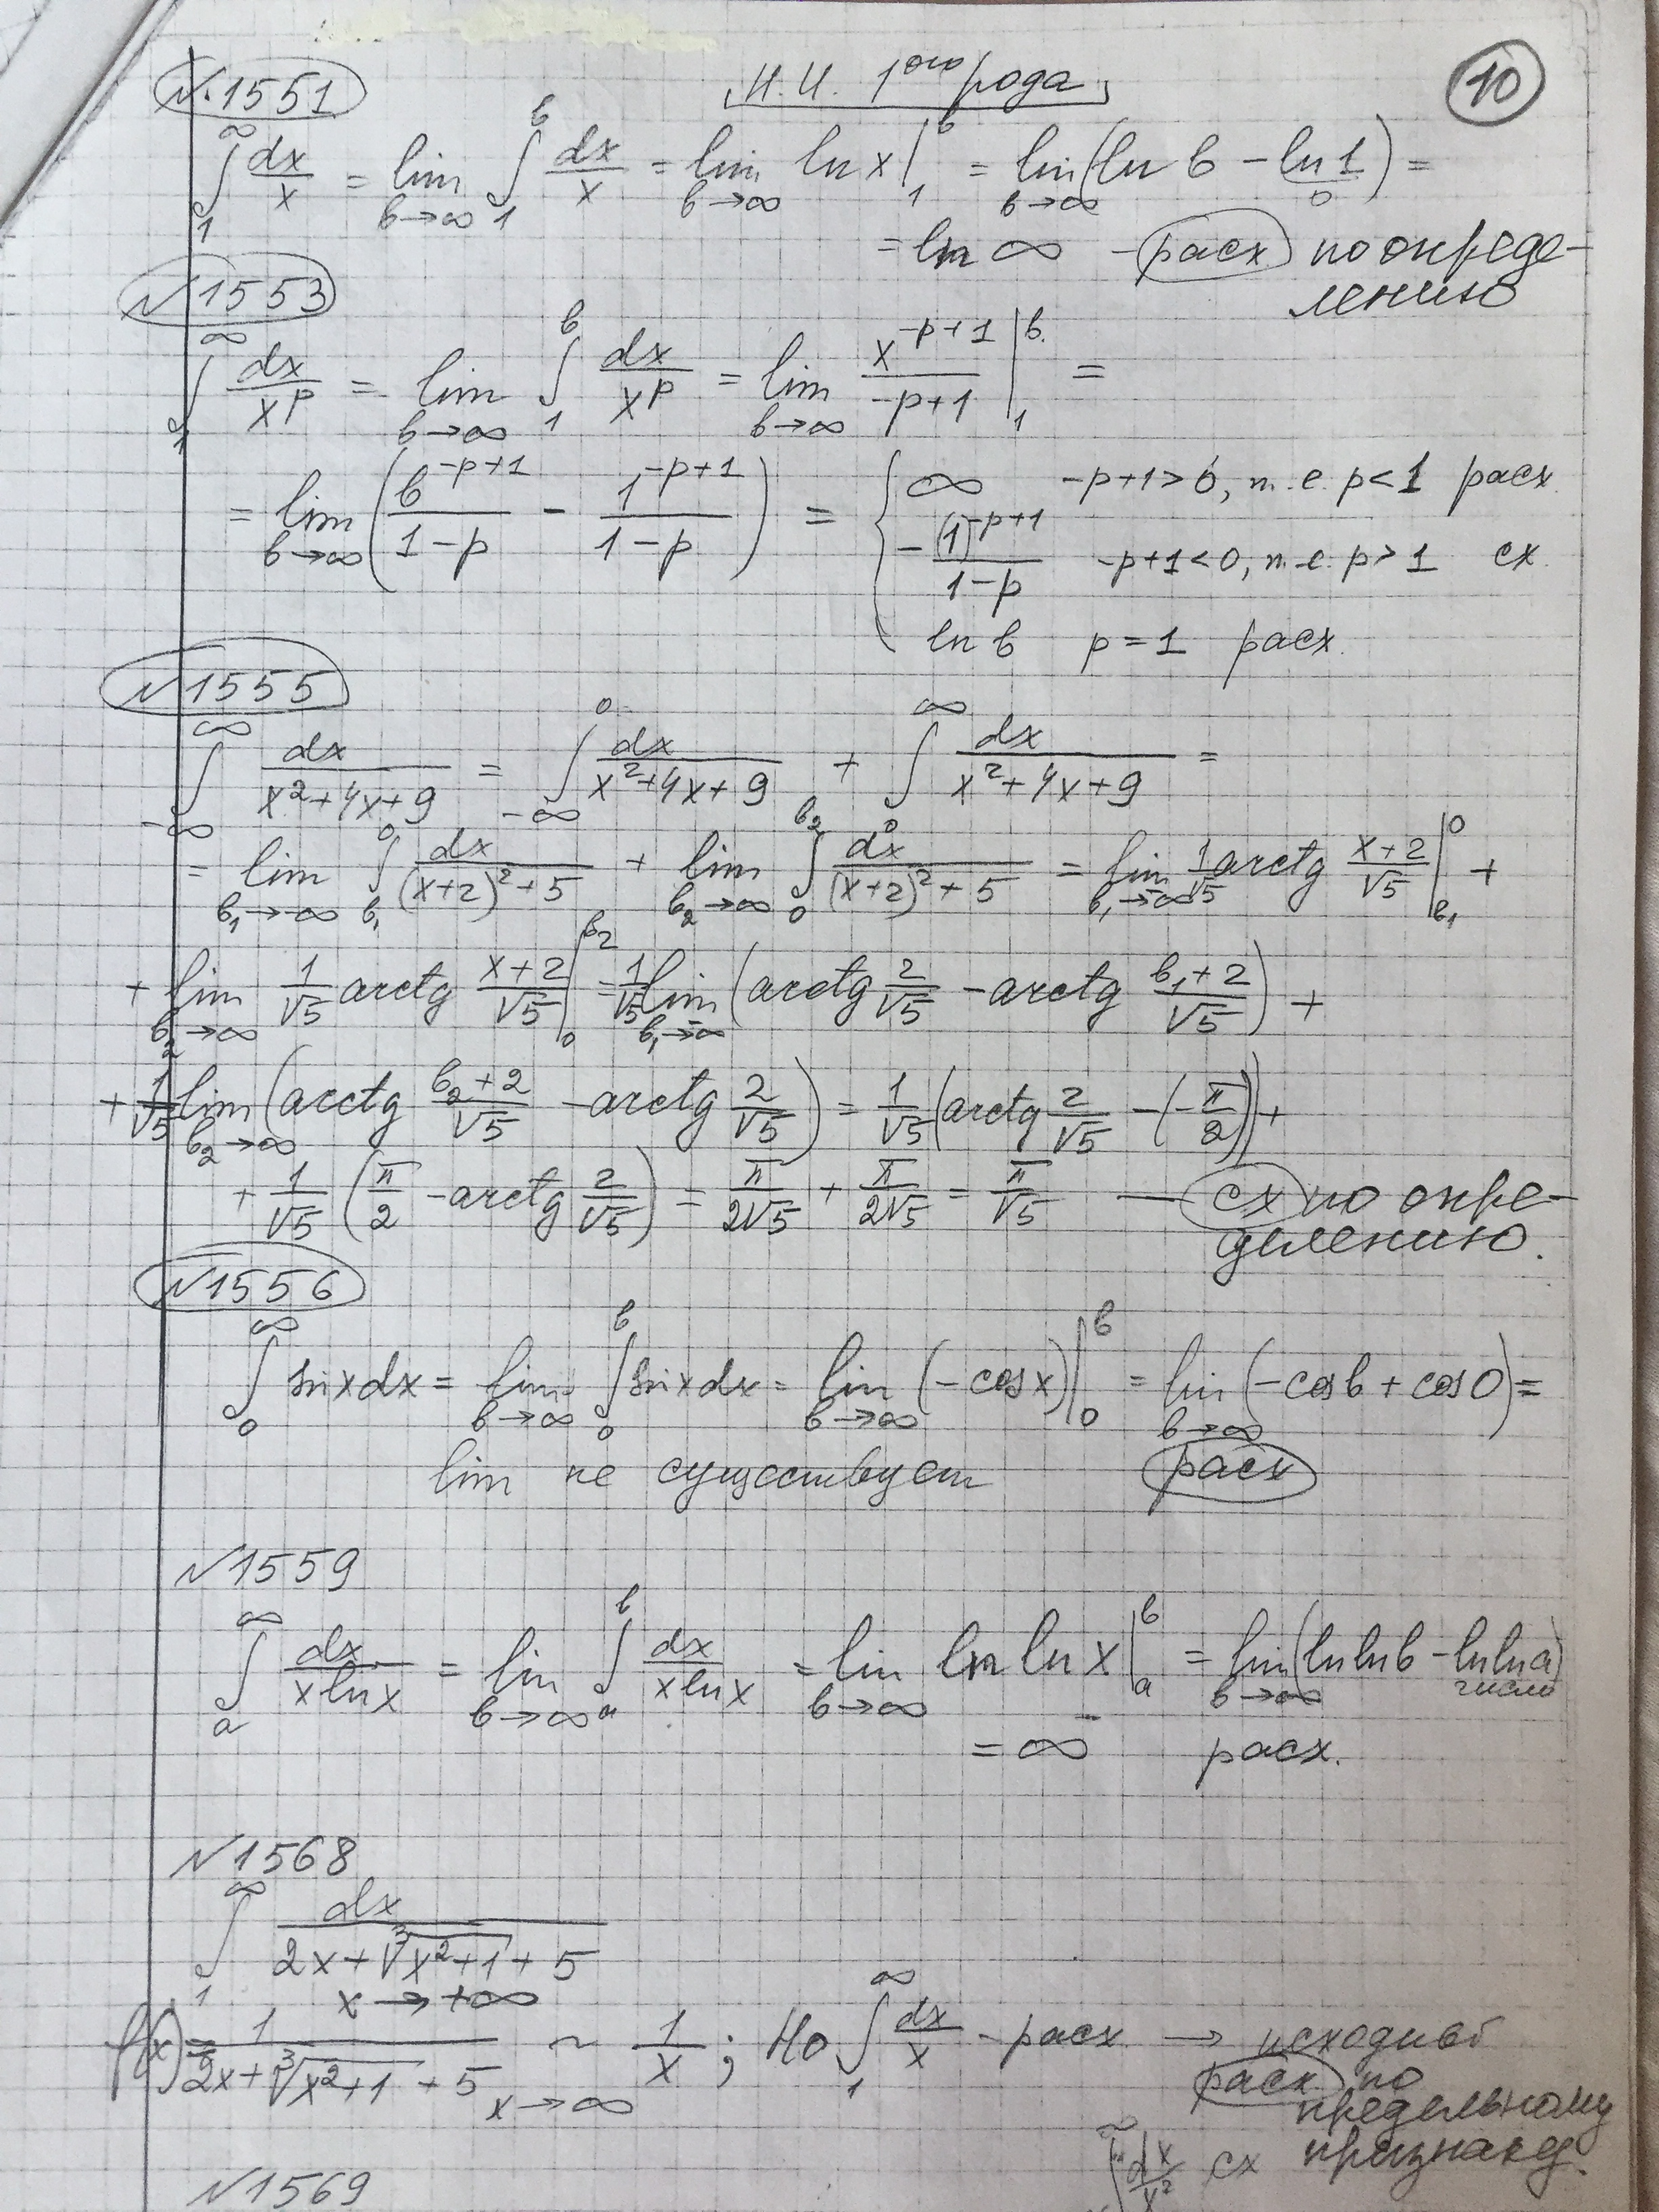 Н.И. 1ого рода
10
N.1551
∫₁^∞ dx/x = lim_{b→∞} ∫₁^b dx/x = lim_{b→∞} ln x |₁^b = lim_{b→∞} (ln b − ln 1) =
0
= ln ∞ – расх по опреде-
лению
N1553
∫₁^∞ dx/x^p = lim_{b→∞} ∫₁^b dx/x^p = lim_{b→∞} x^{-p+1}/(-p+1) |₁^b =
= lim_{b→∞} (b^{-p+1}/(1-p) − 1^{-p+1}/(1-p)) = { ∞ -p+1>0, т.е. p<1 расх.
−(1)^{-p+1}/(1-p) -p+1<0, т.е. p>1 сх.
ln b p=1 расх.
N1555
∫_{-∞}^∞ dx/(x²+4x+9) = ∫_{-∞}^0 dx/(x²+4x+9) + ∫_0^∞ dx/(x²+4x+9) =
= lim_{b₁→-∞} ∫_{b₁}^0 dx/((x+2)²+5) + lim_{b₂→∞} ∫_0^{b₂} dx/((x+2)²+5) = lim_{b₁→-∞} 1/√5 arctg (x+2)/√5 |_{b₁}^0 +
+ lim_{b₂→∞} 1/√5 arctg (x+2)/√5 |_0^{b₂} = 1/√5 lim_{b₁→-∞} (arctg 2/√5 − arctg (b₁+2)/√5) +
+ 1/√5 lim_{b₂→∞} (arctg (b₂+2)/√5 − arctg 2/√5) = 1/√5 (arctg 2/√5 − (−π/2)) +
+ 1/√5 (π/2 − arctg 2/√5) = π/2√5 + π/2√5 = π/√5 — сх по опре-
делению.
N1556
∫_0^∞ sin x dx = lim_{b→∞} ∫_0^b sin x dx = lim_{b→∞} (−cos x) |_0^b = lim_{b→∞} (−cos b + cos 0) =
lim не существует расх
N1559
∫_a^∞ dx/(x ln x) = lim_{b→∞} ∫_a^b dx/(x ln x) = lim_{b→∞} ln ln x |_a^b = lim_{b→∞} (ln ln b − ln ln a)
число
= ∞ расх.
N1568
∫₁^∞ dx/(2x+∛(x²+1)+5)
x→+∞
f(x) = 1/(2x+∛(x²+1)+5) ~_{x→∞} 1/x ; Но ∫₁^∞ dx/x – расх → исходный
расх по
предельному
признаку.
∫^∞ dx/x² сх
N1569